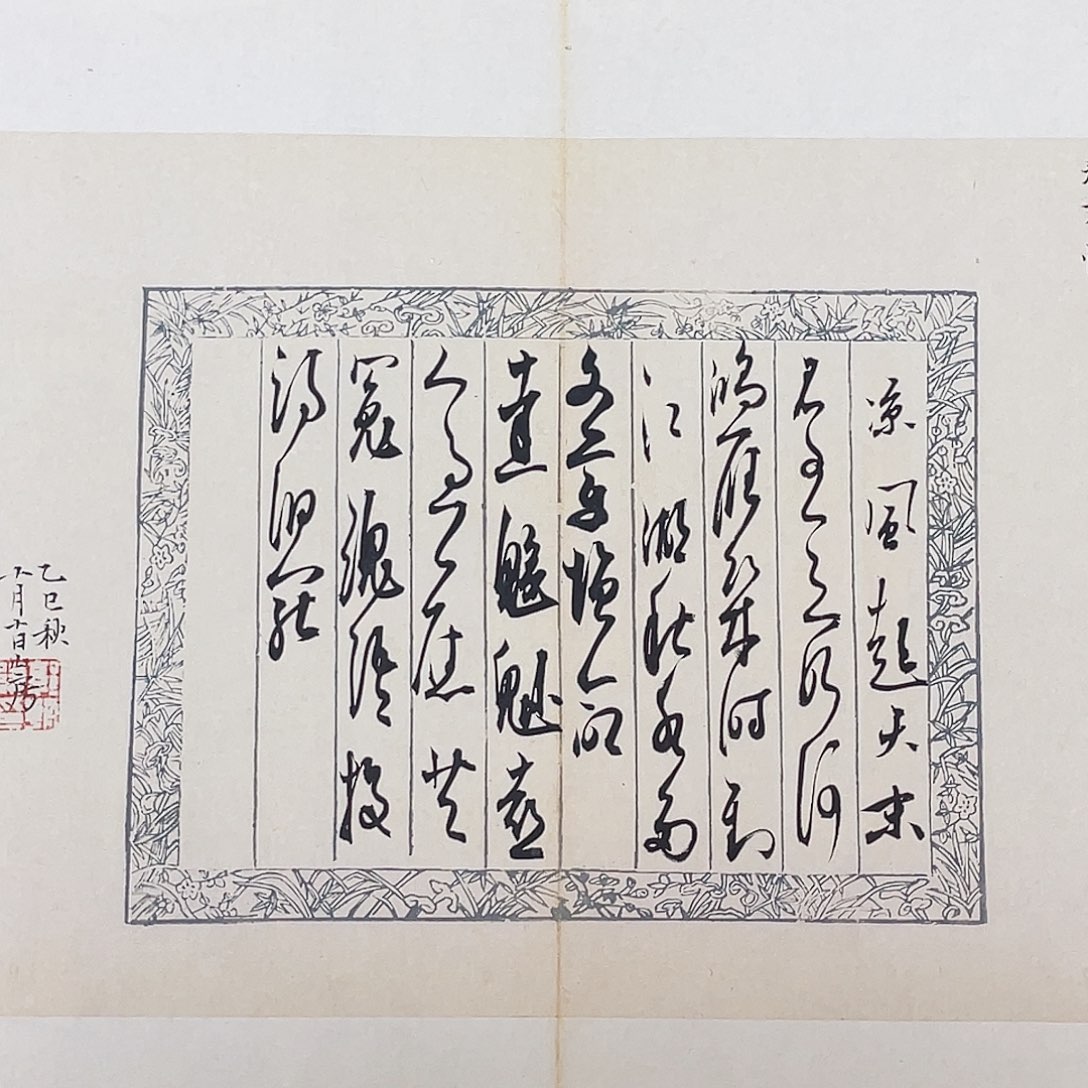 凉風起天末
君子意如何
鴻雁幾時到
江湖秋水多
文章憎命
達魑魅喜
人過應共
冤魂語投
詩汨羅
乙巳秋